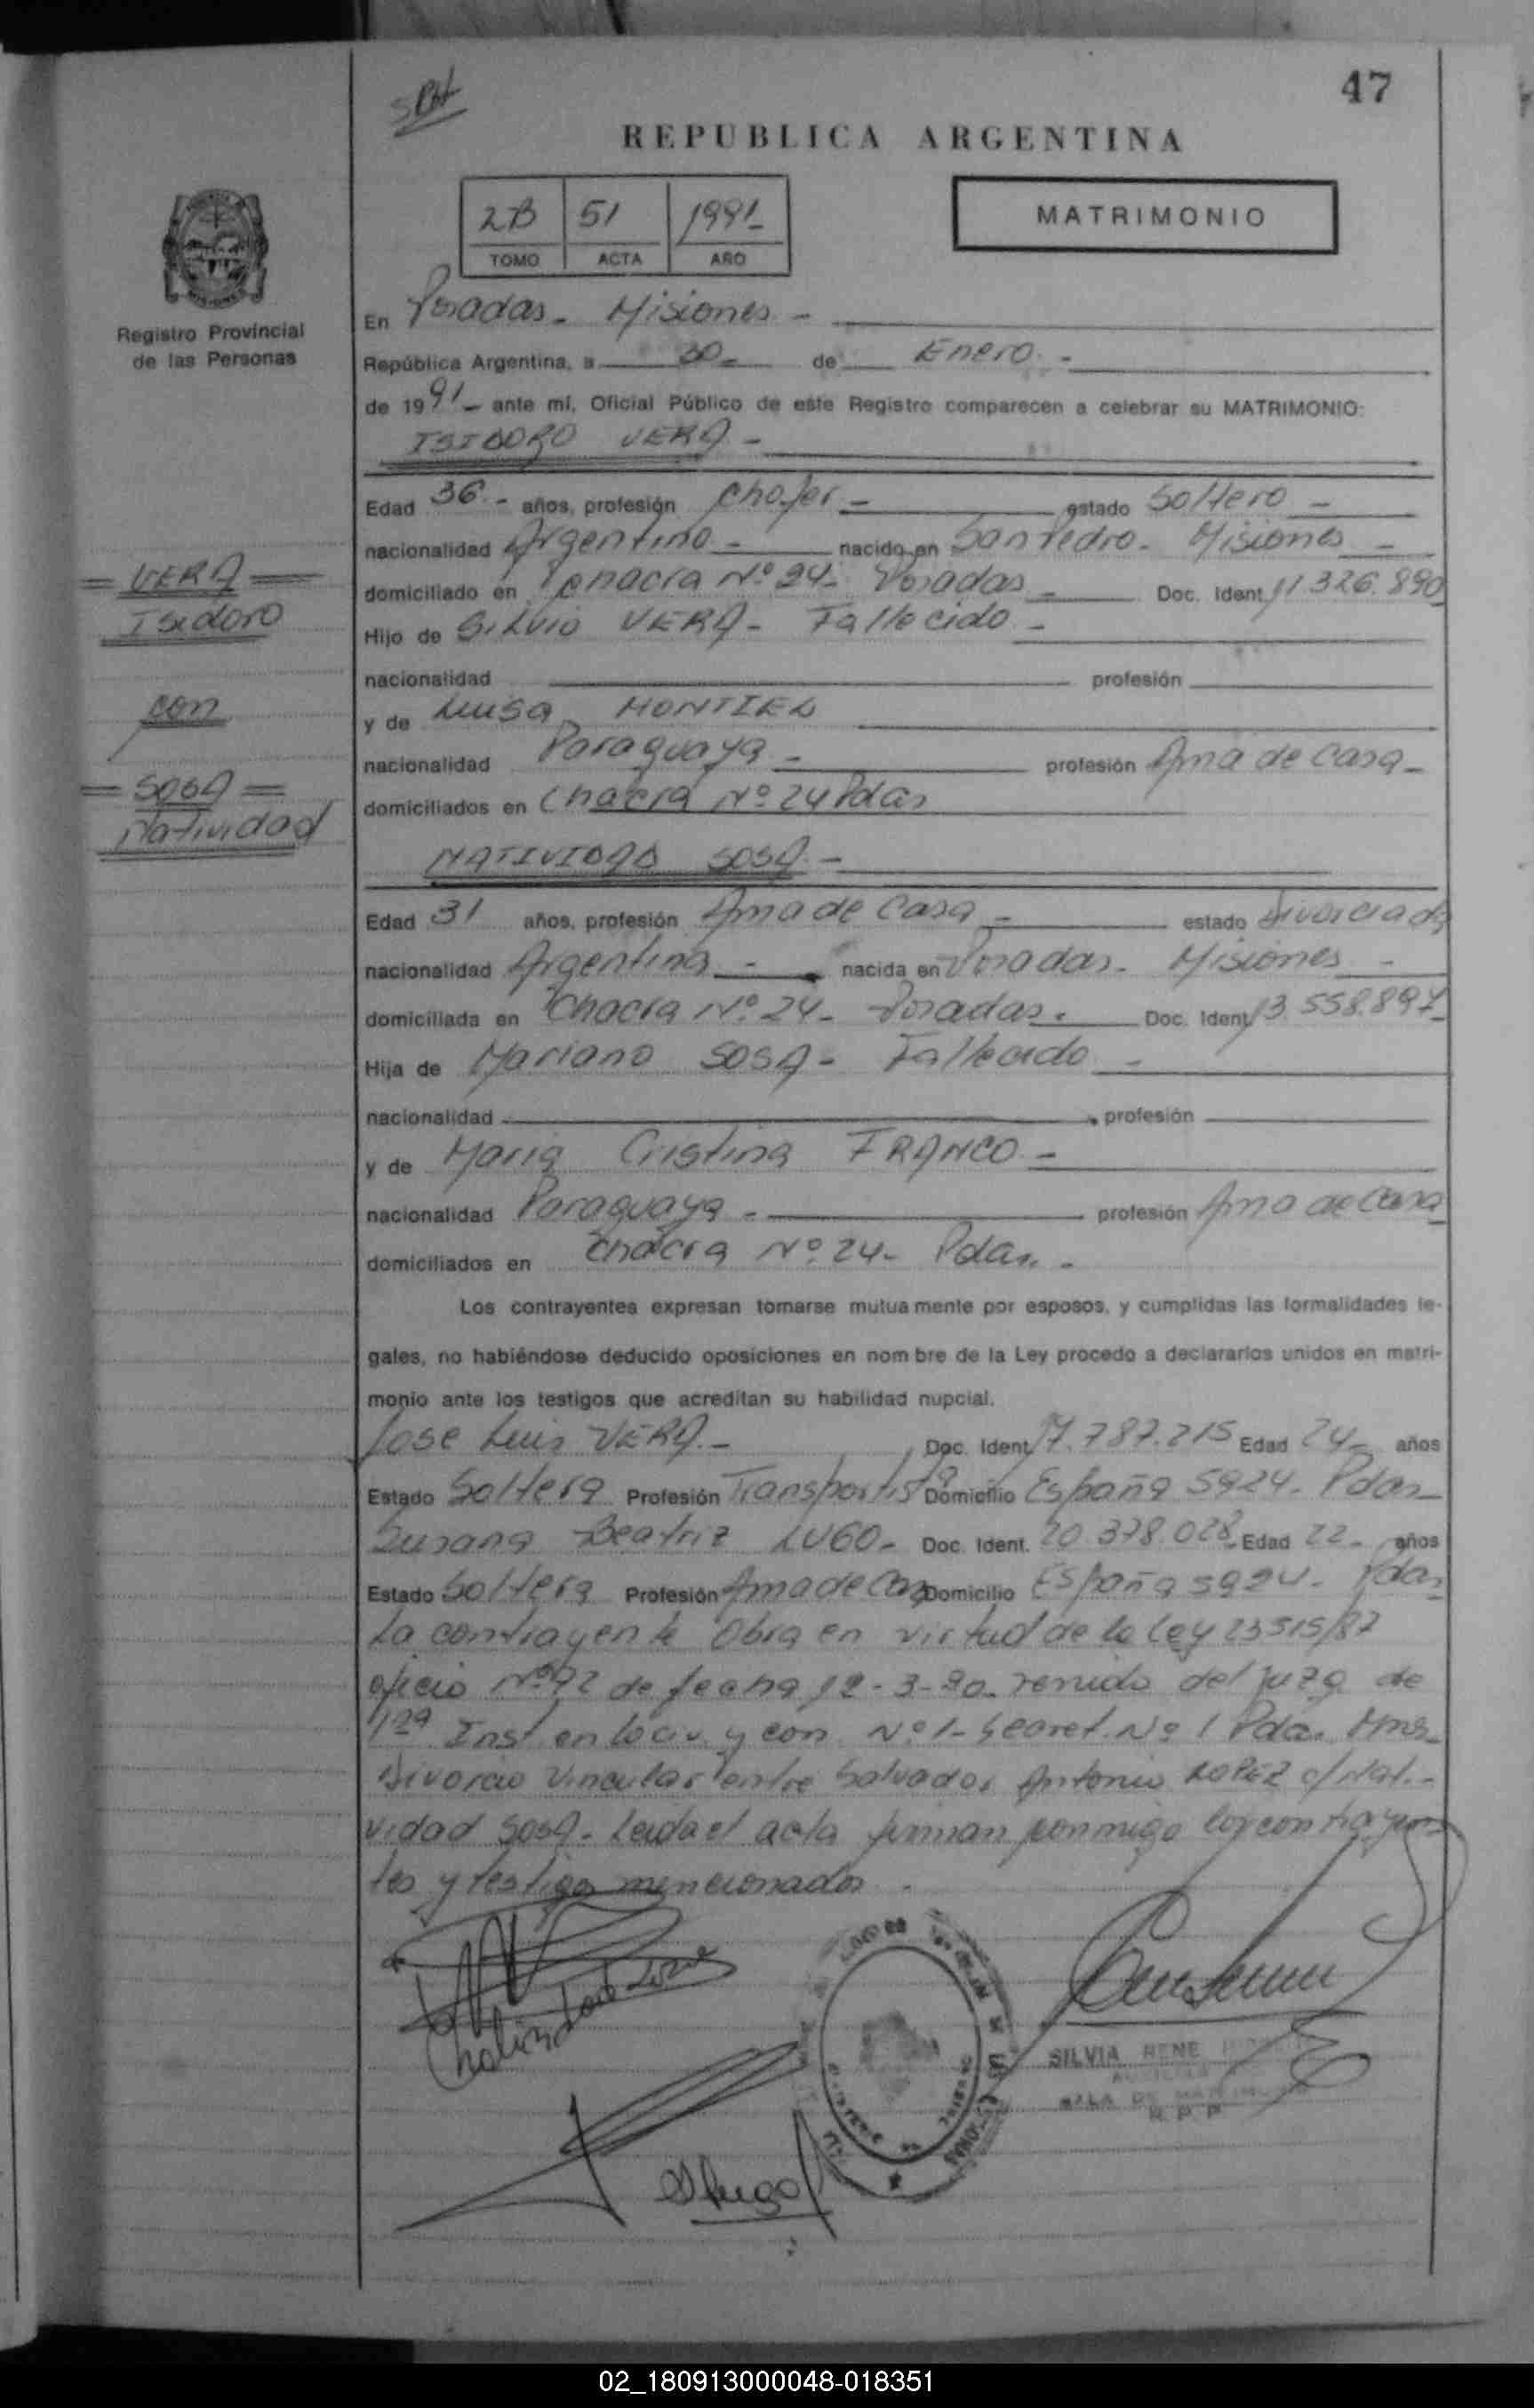 47
REPUBLICA ARGENTINA
2B 51 1991-
TOMO ACTA AÑO
MATRIMONIO
Registro Provincial
de las Personas
En Posadas - Misiones -
República Argentina, a 30- de Enero -
de 1991- ante mí, Oficial Público de este Registro comparecen a celebrar su MATRIMONIO:
ISIDORO VERA -
Edad 36 - años, profesión Chofer - estado Soltero -
nacionalidad Argentino - nacido en San Pedro - Misiones -
domiciliado en Chacra Nº 24 - Posadas - Doc. Ident. 11.326.890
Hijo de Silvio VERA - Fallecido -
nacionalidad profesión
y de Luisa MONTIEL
nacionalidad Paraguaya - profesión Ama de Casa -
domiciliados en Chacra Nº 24 Pdas
= VERA =
Isidoro
con
= SOSA =
Natividad
NATIVIDAD SOSA -
Edad 31 años, profesión Ama de Casa - estado Divorciada
nacionalidad Argentina - nacida en Posadas - Misiones -
domiciliada en Chacra Nº 24 - Posadas. Doc. Ident. 13.558.897-
Hija de Mariano SOSA - Fallecido -
nacionalidad profesión
y de Maria Cristina FRANCO -
nacionalidad Paraguaya - profesión Ama de Casa
domiciliados en Chacra Nº 24 - Pdas. -
Los contrayentes expresan tomarse mutua mente por esposos, y cumplidas las formalidades le-
gales, no habiéndose deducido oposiciones en nom bre de la Ley procedo a declararlos unidos en matri-
monio ante los testigos que acreditan su habilidad nupcial.
Jose Luis VERA - Doc. Ident. 17.787.215 Edad 24- años
Estado Soltera Profesión Transportista Domicilio España 5924 - Pdas-
Susana Beatriz LUGO - Doc. Ident. 20.378.028 - Edad 22- años
Estado Soltera Profesión Ama de Casa Domicilio España 5924 - Pdas
La contrayente Obra en virtud de la Ley 23515/87
oficio Nº 72 de fecha 12-3-90 - venido del juzg de
1ra Inst en lo civ. y com Nº 1 - Secret. Nº 1 Pdas Mnes-
Divorcio Vincular entre Salvador Antonio LOPEZ c/ Nati-
vidad SOSA - Leida el acta firman conmigo los contrayen-
tes y testigos mencionados -
SILVIA RENE
SALA DE MATRIMONIO
R. P. P.
02_180913000048-018351